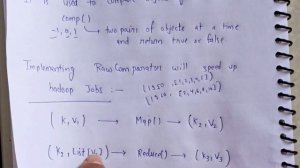 It is used to compare
comp()
-1, 0, 1 → two pairs of objects at a time
and return true or false
Implementing RawComparator will speed up
hadoop Jobs :-
(K, V1) → Map() → (K2, V2)
(K2, List[V2]) → Reduce() → (K3, V3)